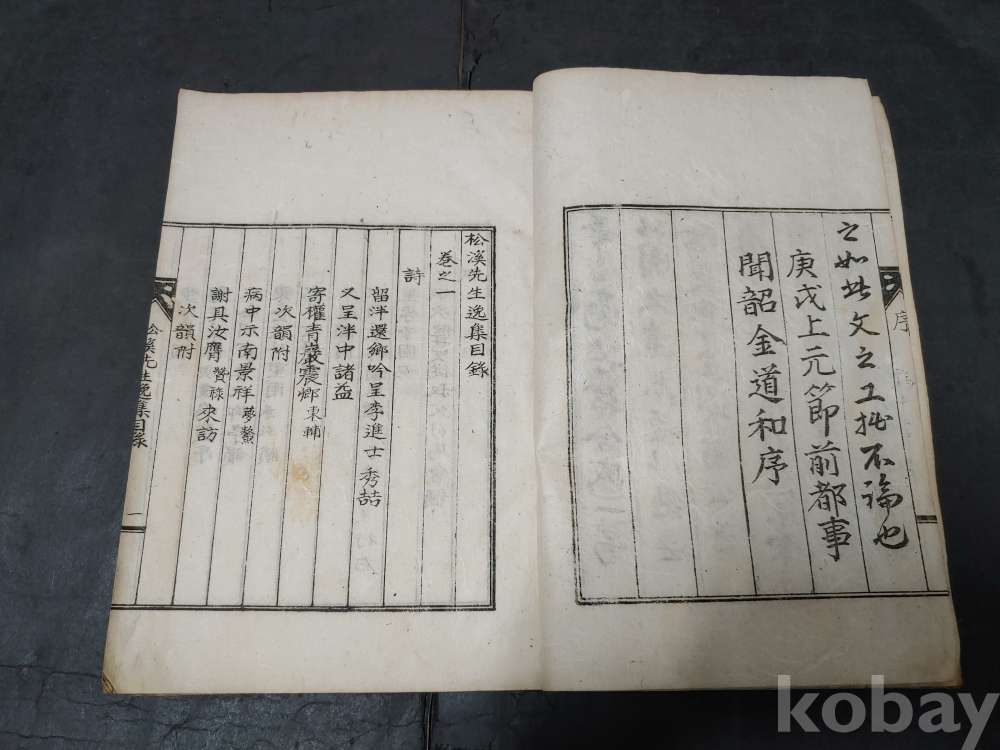 之如此文之工拙不論也
庚戌上元節前都事
聞韶金道和序
序
松溪先生逸集目錄
卷之一
詩
留泮還鄕吟呈李進士秀喆
又呈泮中諸益
寄權青巖震卿東輔
次韻附
病中示南景祥夢鰲
謝具汝膺贊祿來訪
次韻附
松溪先生逸集目錄
一
kobay